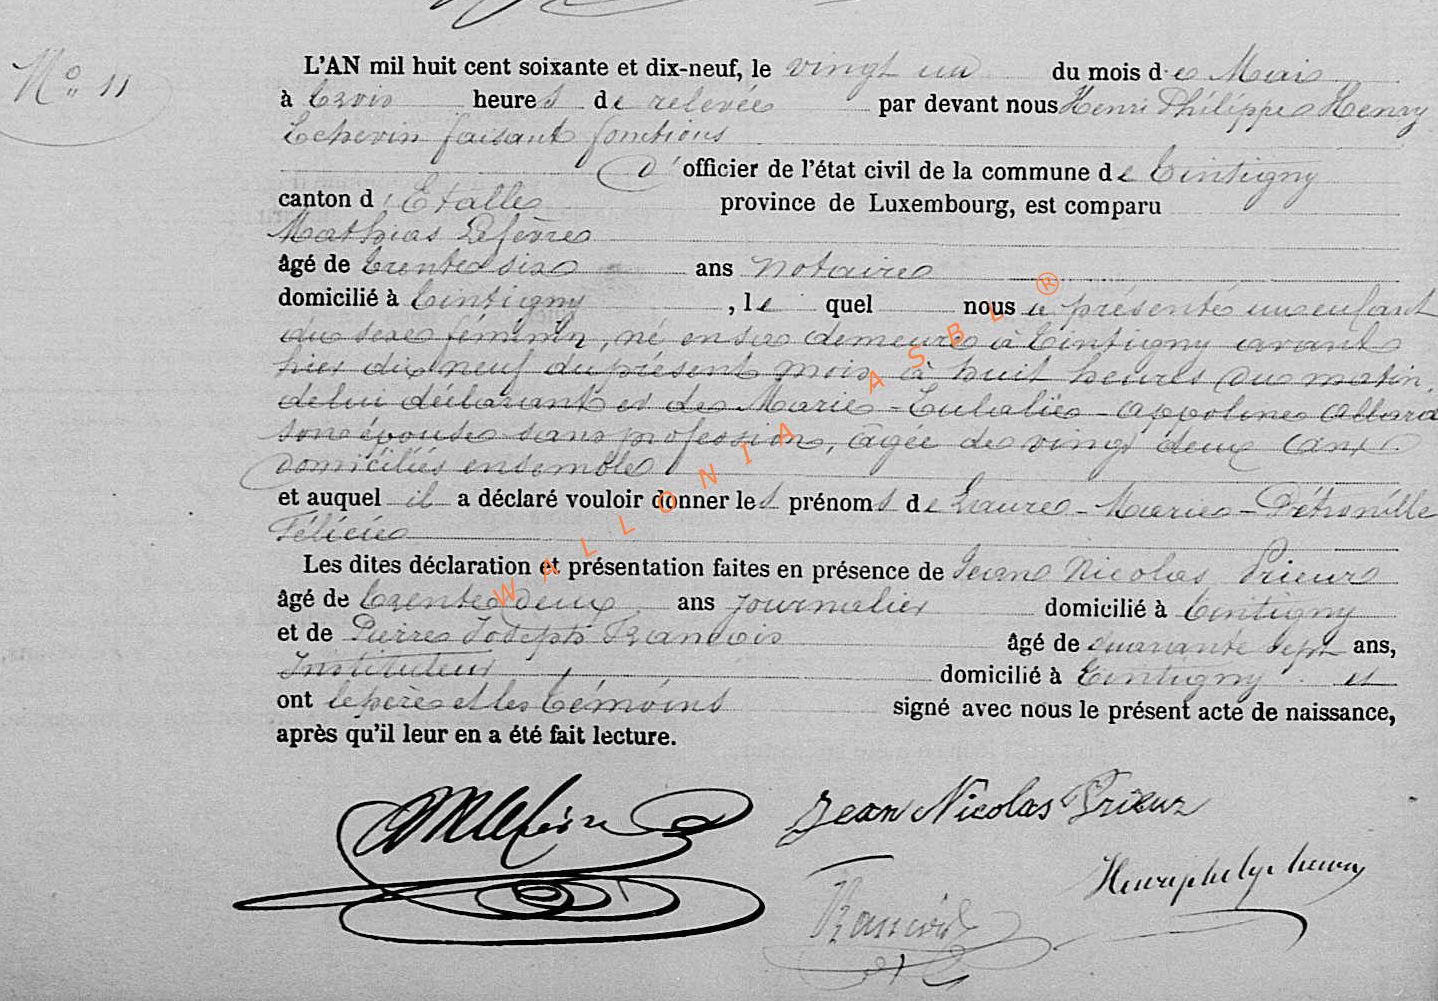 N° 11
L'AN mil huit cent soixante et dix-neuf, le vingt un du mois de Mai
à trois heures de relevée par devant nous Henri Philippe Henry
Echevin faisant fonctions
d'officier de l'état civil de la commune de Tintigny
canton d'Etalle province de Luxembourg, est comparu
Mathias Lefèvre
âgé de trente six ans notaire
domicilié à Tintigny, lequel nous a présenté un enfant
du sexe féminin, né en sa demeure à Tintigny avant
hier dix neuf du présent mois à huit heures du matin,
de lui déclarant et de Marie-Eulalie-Appoline Allard
son épouse sans profession, âgée de vingt deux ans
domiciliés ensemble
et auquel il a déclaré vouloir donner les prénoms de Laure-Marie-Pétronille
Félicie
Les dites déclaration et présentation faites en présence de Jean Nicolas Prieur
âgé de trente deux ans journalier domicilié à Tintigny
et de Pierre Joseph François âgé de quarante sept ans,
Instituteur domicilié à Tintigny et
ont le père et les témoins signé avec nous le présent acte de naissance,
après qu'il leur en a été fait lecture.
MLefèvre Jean Nicolas Prieur
François Henriphelipe henry
WALLONIA ASBL ®